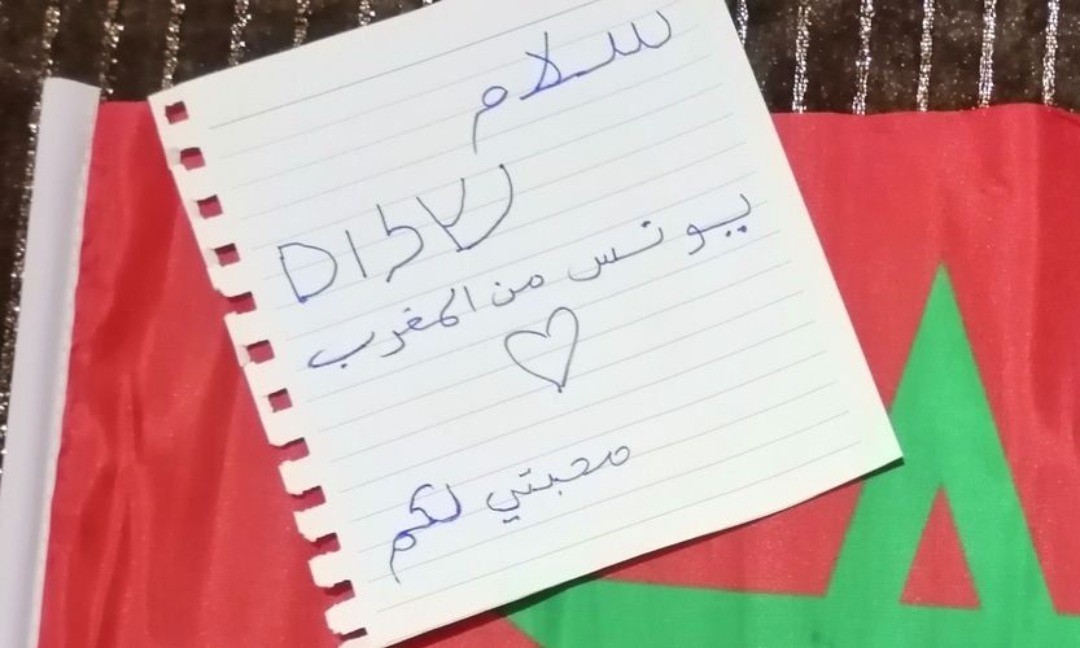 سلام
שלום
يونس من المغرب
محبتي لكم